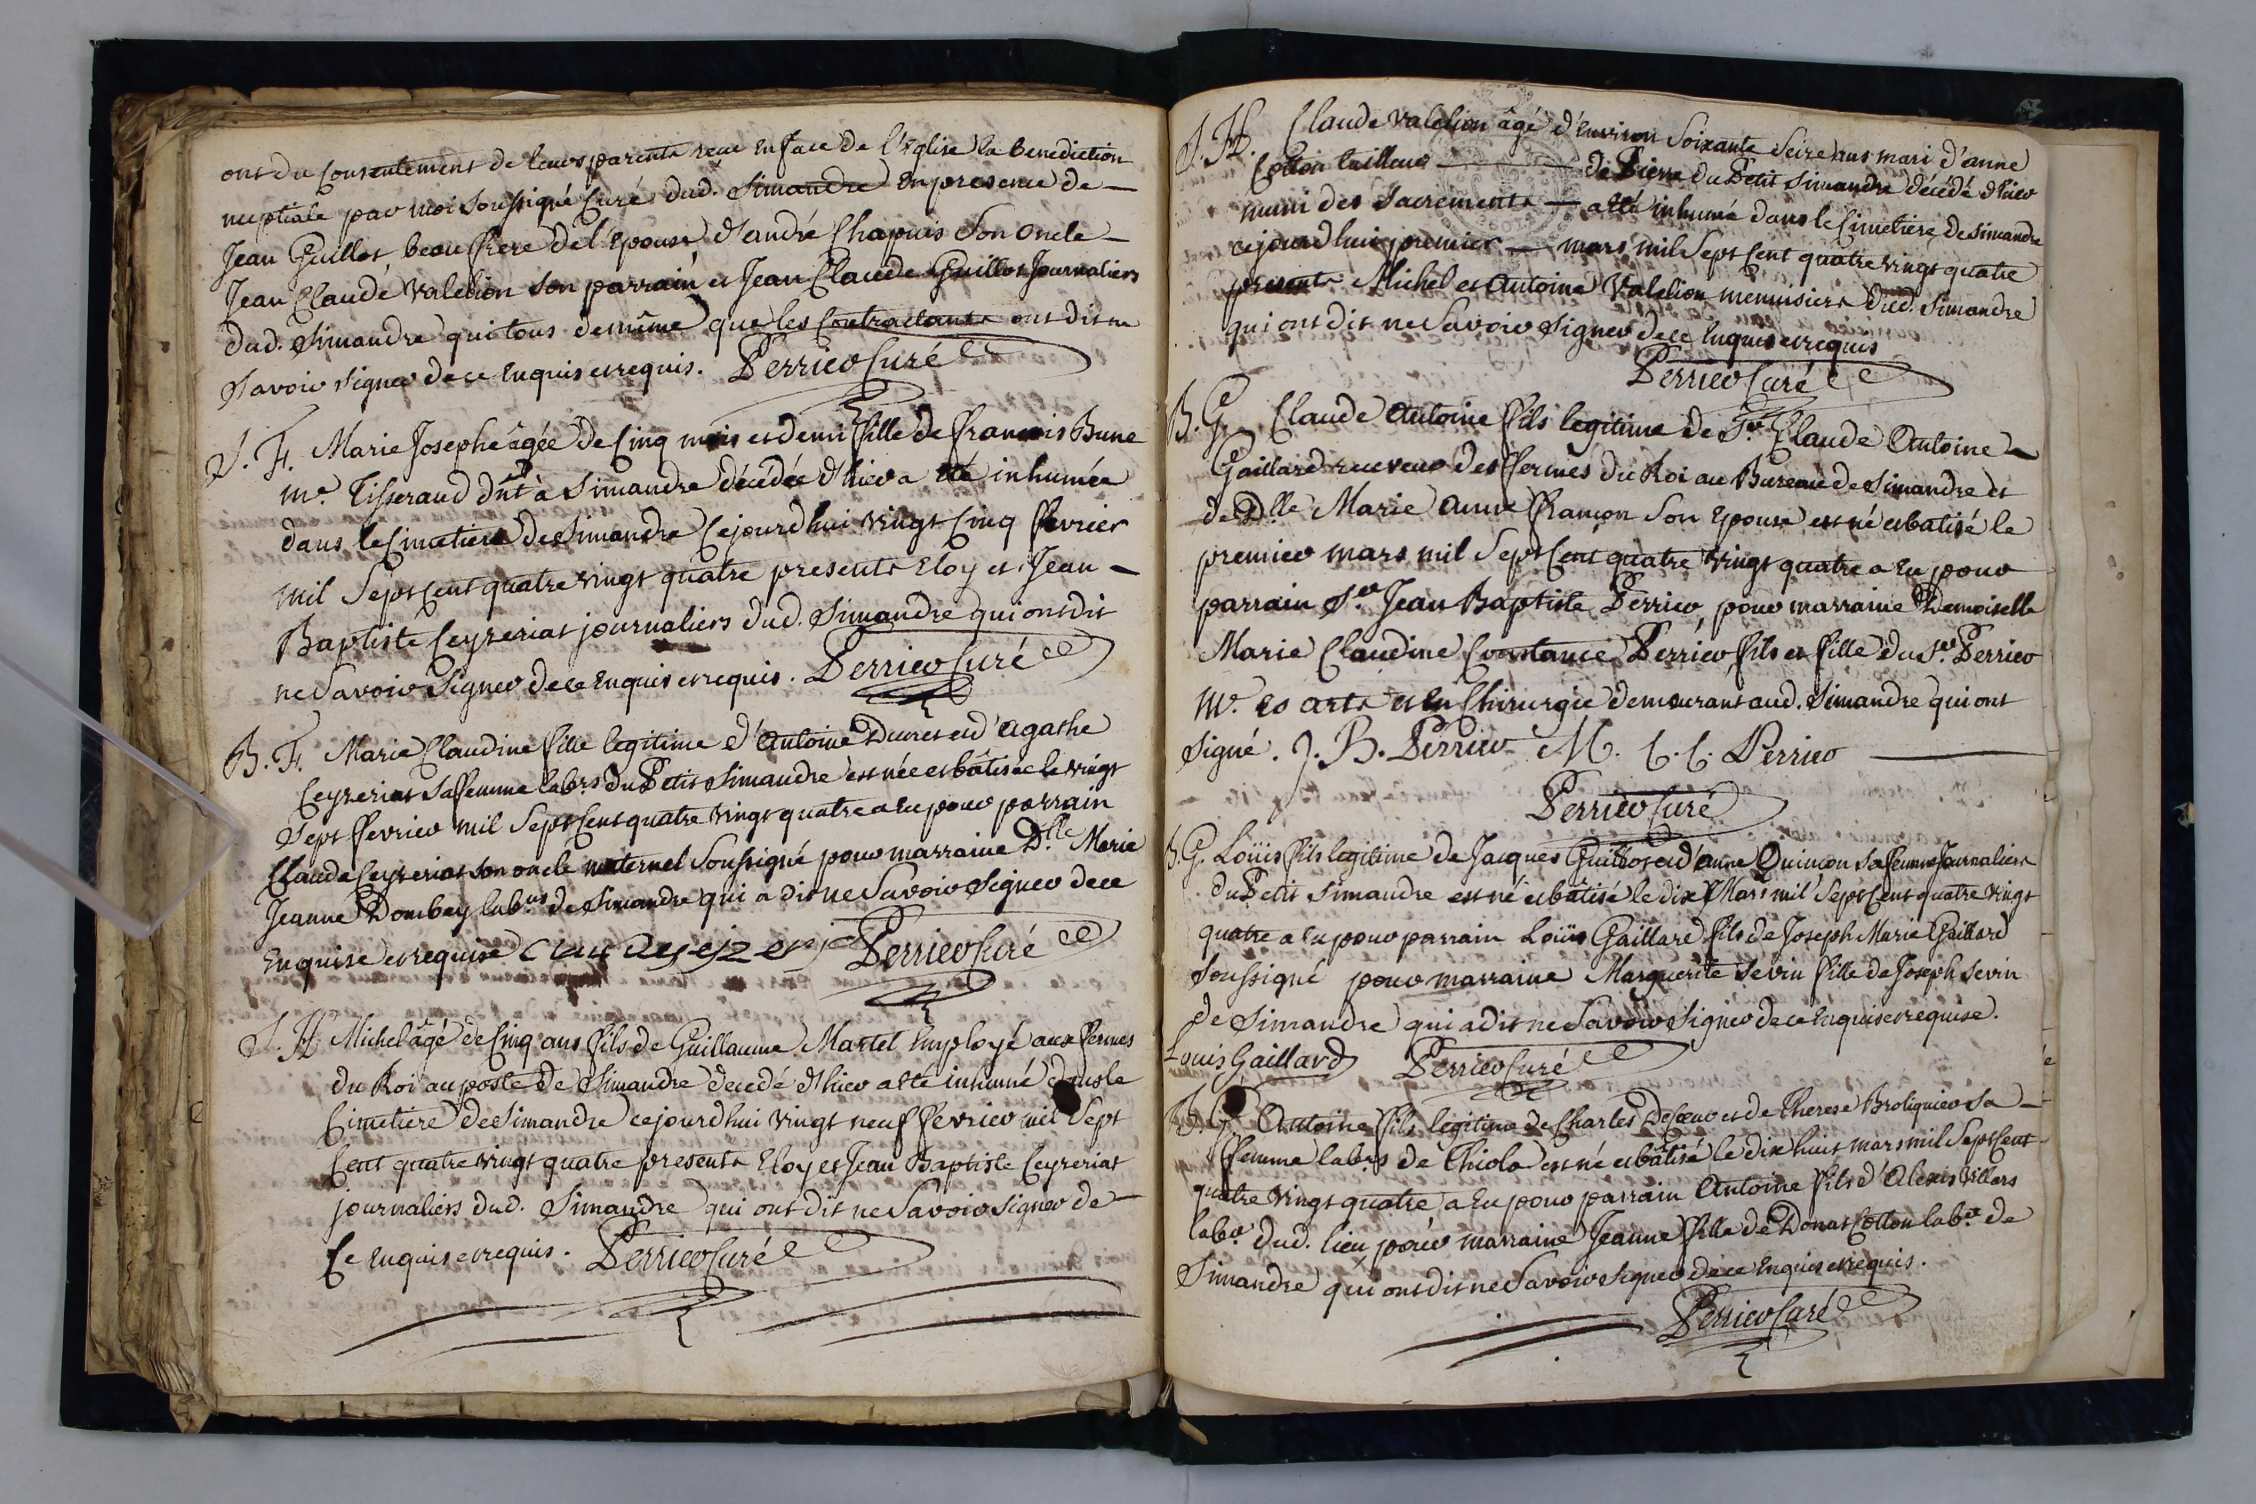 ont du consentement de leurs parents reçu en face de l'église la benediction
nuptiale par moi soussigné Curé dud. Simandre en presence de
Jean Guillot beau frere de l'epouse d'andré Chapuis son oncle
Jean Claude Valelion son parrain et Jean Claude Guillot Journaliers
dud. Simandre qui tous de même que les Contractants ont dit ne
savoir signer de ce enquis et requis. Perrier Curé
S. F. Marie Josephe âgée de Cinq mois et demi fille de françois Bune
Me. Tisserand dmt à Simandre décédée d'hier a été inhumée
dans le Cimetiere de Simandre Cejourd'hui vingt Cinq fevrier
mil Sept Cent quatre vingt quatre presents Eloy et Jean
Baptiste Ceyzeriat journaliers dud. Simandre qui ont dit
ne savoir signer de ce enquis et requis. Perrier Curé
B. F. Marie Claudine fille legitime d'Antoine Ducret et d'Agathe
Ceyzeriat sa femme labrs du Petit Simandre est née et bâtisée le vingt
Sept fevrier mil Sept Cent quatre vingt quatre a eu pour parrain
Claude Ceyzeriat son oncle maternel soussigné pour marraine D.lle Marie
Jeanne Dombey labrs de Simandre qui a dit ne savoir signer de ce
enquise et requise Perrier Curé
S. H. Michel âgé de Cinq ans fils de Guillaume Martel Employé aux fermes
du Roi au poste de Simandre decedé d'hier a été inhumé dans le
Cimetiere de Simandre cejourd'hui vingt neuf fevrier mil Sept
Cent quatre vingt quatre presents Eloy et Jean Baptiste Ceyzeriat
journaliers dud. Simandre qui ont dit ne savoir signer de
Ce enquis et requis. Perrier Curé
S. H. Claude Valelion âgé d'environ Soixante Seize ans mari d'anne
Cotton tailleur de Pierre du Petit Simandre décédé d'hier
muni des Sacrements a été inhumé dans le Cimetiere de Simandre
cejourd'hui premier mars mil Sept Cent quatre vingt quatre
presents Michel et Antoine Valelion menuisiers dud. Simandre
qui ont dit ne savoir signer de ce enquis et requis
Perrier Curé
B. G. Claude Antoine fils legitime de Sr. Claude Antoine
Gaillard receveur des fermes du Roi au Bureau de Simandre et
de D.lle Marie Anne françon son epouse est né et batisé le
premier mars mil Sept Cent quatre vingt quatre a eu pour
parrain Sr. Jean Baptiste Perrier, pour marraine Demoiselle
Marie Claudine Constance Perrier fils et fille du Sr. Perrier
Me. es arts et en Chirurgie demeurant aud. Simandre qui ont
signé. J. B. Perrier M. C. C. Perrier
Perrier Curé
B. G. Loüis fils legitime de Jacques Guillot et d'anne Quinson sa femme Journaliers
du Petit Simandre est né et bâtisé le dix Mars mil Sept Cent quatre vingt
quatre a eu pour parrain Loüis Gaillard fils de Joseph Marie Gaillard
soussigné pour marraine Marguerite Sevin fille de Joseph Sevin
de Simandre qui a dit ne savoir signer de ce enquise et requise.
Louis Gaillard Perrier Curé
B. G. Antoine fils legitime de Charles Decoeur et de Therese Broliquier sa
femme labrs de Thiole est né et bâtisé le dix huit mars mil Sept Cent
quatre vingt quatre a eu pour parrain Antoine fils d'Alexis Villars
labr. dud. lieu pour marraine Jeanne fille de Donat Cotton labr. de
Simandre qui ont dit ne savoir signer de ce enquis et requis.
Perrier Curé